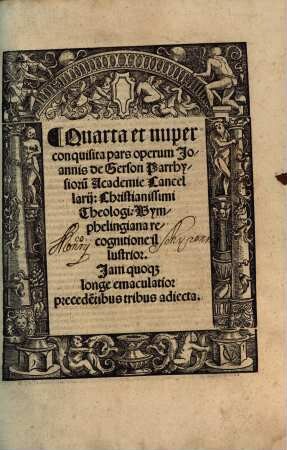 Quarta et nuper
conquisita pars operum Jo-
annis de Gerson Parrhy-
siorū Academie Cancel
larij: Christianissimi
Theologi: Vym-
phelingiana re
cognitione il
lustrior.
Jam quoqꝫ
longe emaculatior
precedētibus tribus adiecta.